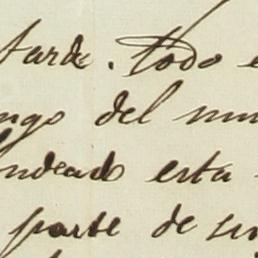 tarde. Todo e
ngo del mu
ndeado esta
parte de su